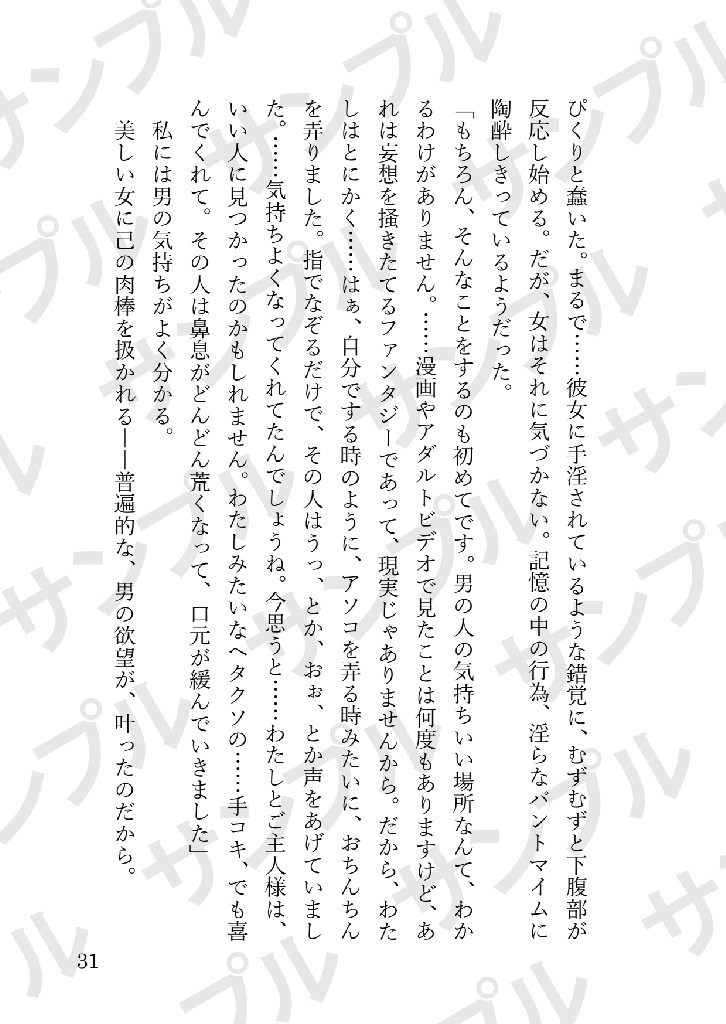 ぴくりと蠢いた。まるで……彼女に手淫されているような錯覚に、むずむずと下腹部が
反応し始める。だが、女はそれに気づかない。記憶の中の行為、淫らなパントマイムに
陶酔しきっているようだった。
「もちろん、そんなことをするのも初めてです。男の人の気持ちいい場所なんて、わか
るわけがありません。……漫画やアダルトビデオで見たことは何度もありますけど、あ
れは妄想を掻きたてるファンタジーであって、現実じゃありませんから。だから、わた
しはとにかく……はぁ、自分でする時のように、アソコを弄る時みたいに、おちんちん
を弄りました。指でなぞるだけで、その人はうっ、とか、おぉ、とか声をあげていまし
た。……気持ちよくなってくれてたんでしょうね。今思うと……わたしとご主人様は、
いい人に見つかったのかもしれません。わたしみたいなヘタクソの……手コキ、でも喜
んでくれて。その人は鼻息がどんどん荒くなって、口元が緩んでいきました」
私には男の気持ちがよく分かる。
美しい女に己の肉棒を扱かれる――普遍的な、男の欲望が、叶ったのだから。
31
サンプル